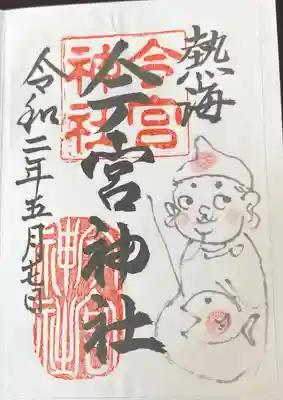 熱海
今宮
神社
今宮神社
令和二年五月